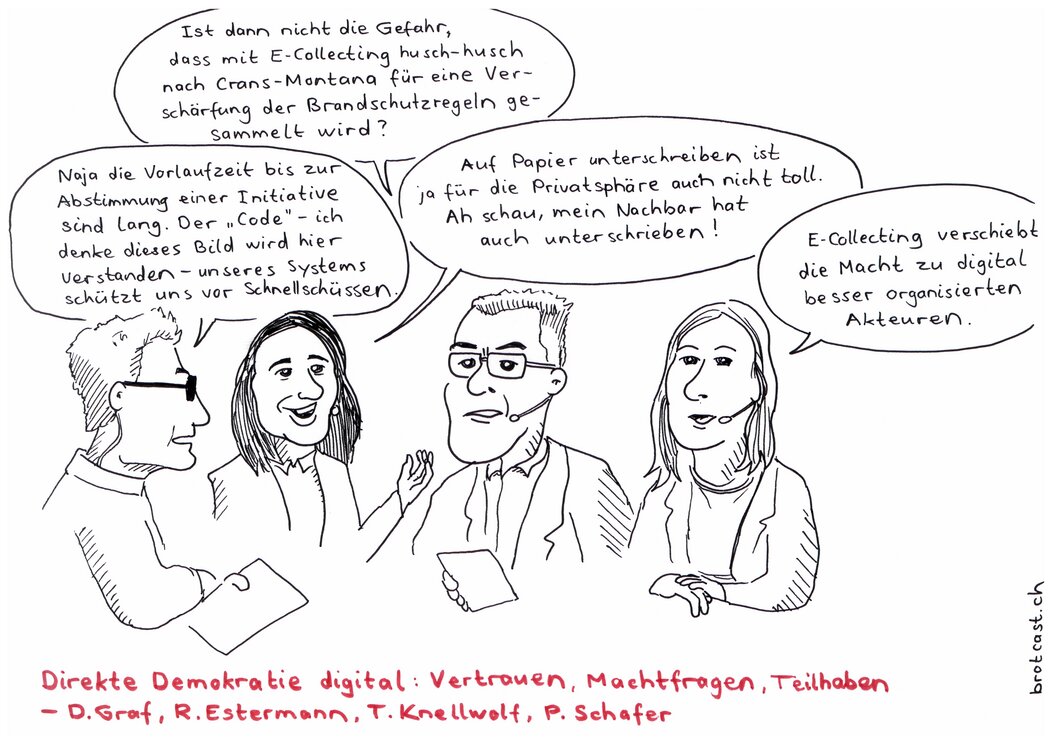 Ist dann nicht die Gefahr,
dass mit E-Collecting husch-husch
nach Crans-Montana für eine Ver-
schärfung der Brandschutzregeln ge-
sammelt wird?
Naja die Vorlaufzeit bis zur
Abstimmung einer Initiative
sind lang. Der „Code" - ich
denke dieses Bild wird hier
verstanden - unseres Systems
schützt uns vor Schnellschüssen.
Auf Papier unterschreiben ist
ja für die Privatsphäre auch nicht toll.
Ah schau, mein Nachbar hat
auch unterschrieben!
E-Collecting verschiebt
die Macht zu digital
besser organisierten
Akteuren.
brotcast.ch
Direkte Demokratie digital: Vertrauen, Machtfragen, Teilhaben
- D. Graf, R. Estermann, T. Knellwolf, P. Schafer